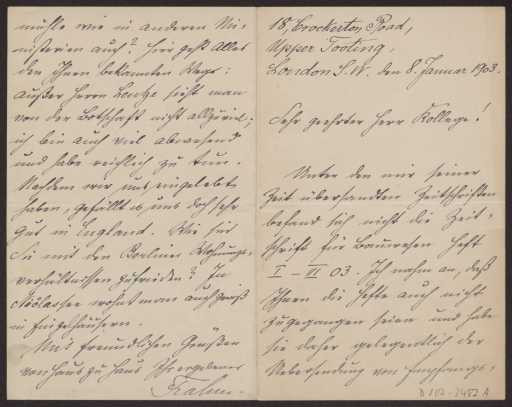 18, Crockerton Road,
Upper Tooting,
London S.W. den 8. Januar 1903.
Sehr geehrter Herr Kollege!
Unter den mir seiner
Zeit übersandten Zeitschriften
befand sich nicht die Zeit-
schrift für Bauwesen Heft
I – III 03. Ich nahm an, daß
Ihnen die Hefte auch nicht
zugegangen seien und habe
sie daher gelegentlich der
Uebersendung von Empfangs-
D 102-2452 A
mühle wie in anderen Mi-
nisterien auch? Hier geht Alles
den Ihnen bekannten Weg:
außer Herrn sieht man
von der Botschaft nicht allzuviel;
ich bin auch viel abwesend
und habe reichlich zu tun.
Nachdem wir uns eingelebt
haben, gefällt es uns doch sehr
gut in England. Wie sind
Sie mit den Berliner Wohnungs-
verhältnissen zufrieden? In
Nicolassee wohnt man auch ganz
in Einzelhäusern.
Mit freundlichen Grüßen
von Haus zu Haus Ihr ergebener
Frahm.